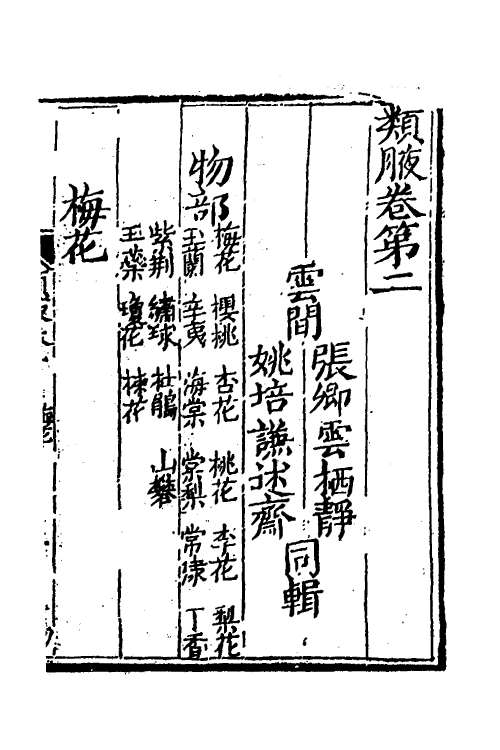 類腋卷第二
張卿雲栖靜
雲間 同輯
姚培謙述齋
物部
梅花 櫻桃 杏花 桃花 李花 梨花
玉蘭 辛夷 海棠 棠梨 常棣 丁香
紫荆 繡球 杜鵑 山礬
玉蘂 瓊花 楝花
梅花